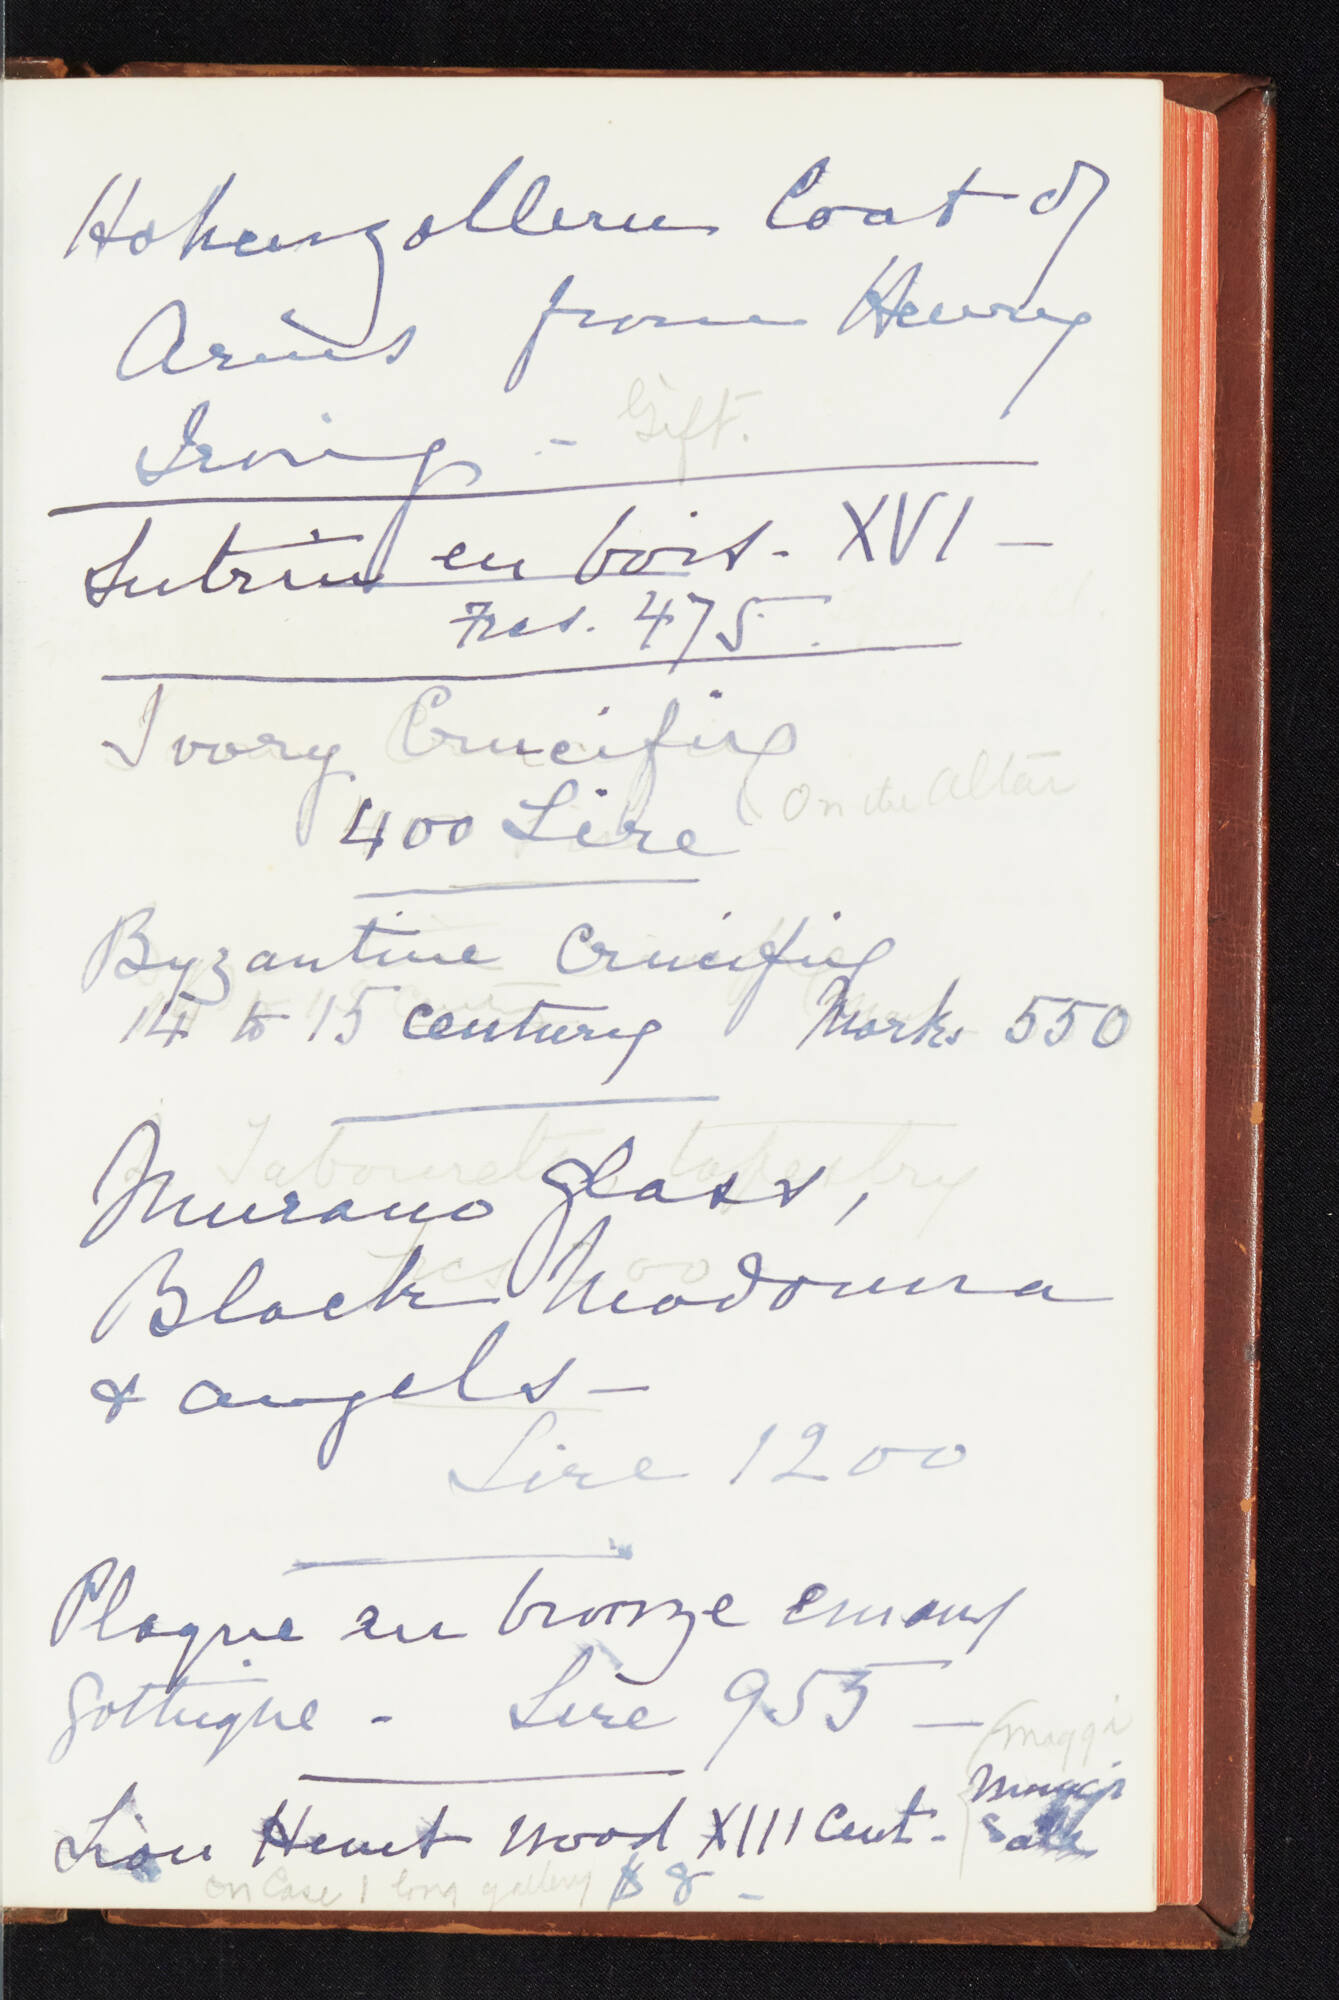 Hohenzollern Coat of
Arms from Henry
Irving - Gift.
Lutrin en bois - XVI -
Frcs. 475.
Ivory Crucifix
400 Lire (On the Altar
Byzantine Crucifix
14 to 15 century Marks 550
Murano glass,
Black Madonna
& angels -
Lire 1200
Plaque en bronze emaux
gothique - Lire 955 -
(Maggi
Lion Hunt wood XIII Cent. Sale
on Case 1 long gallery $ 8 -